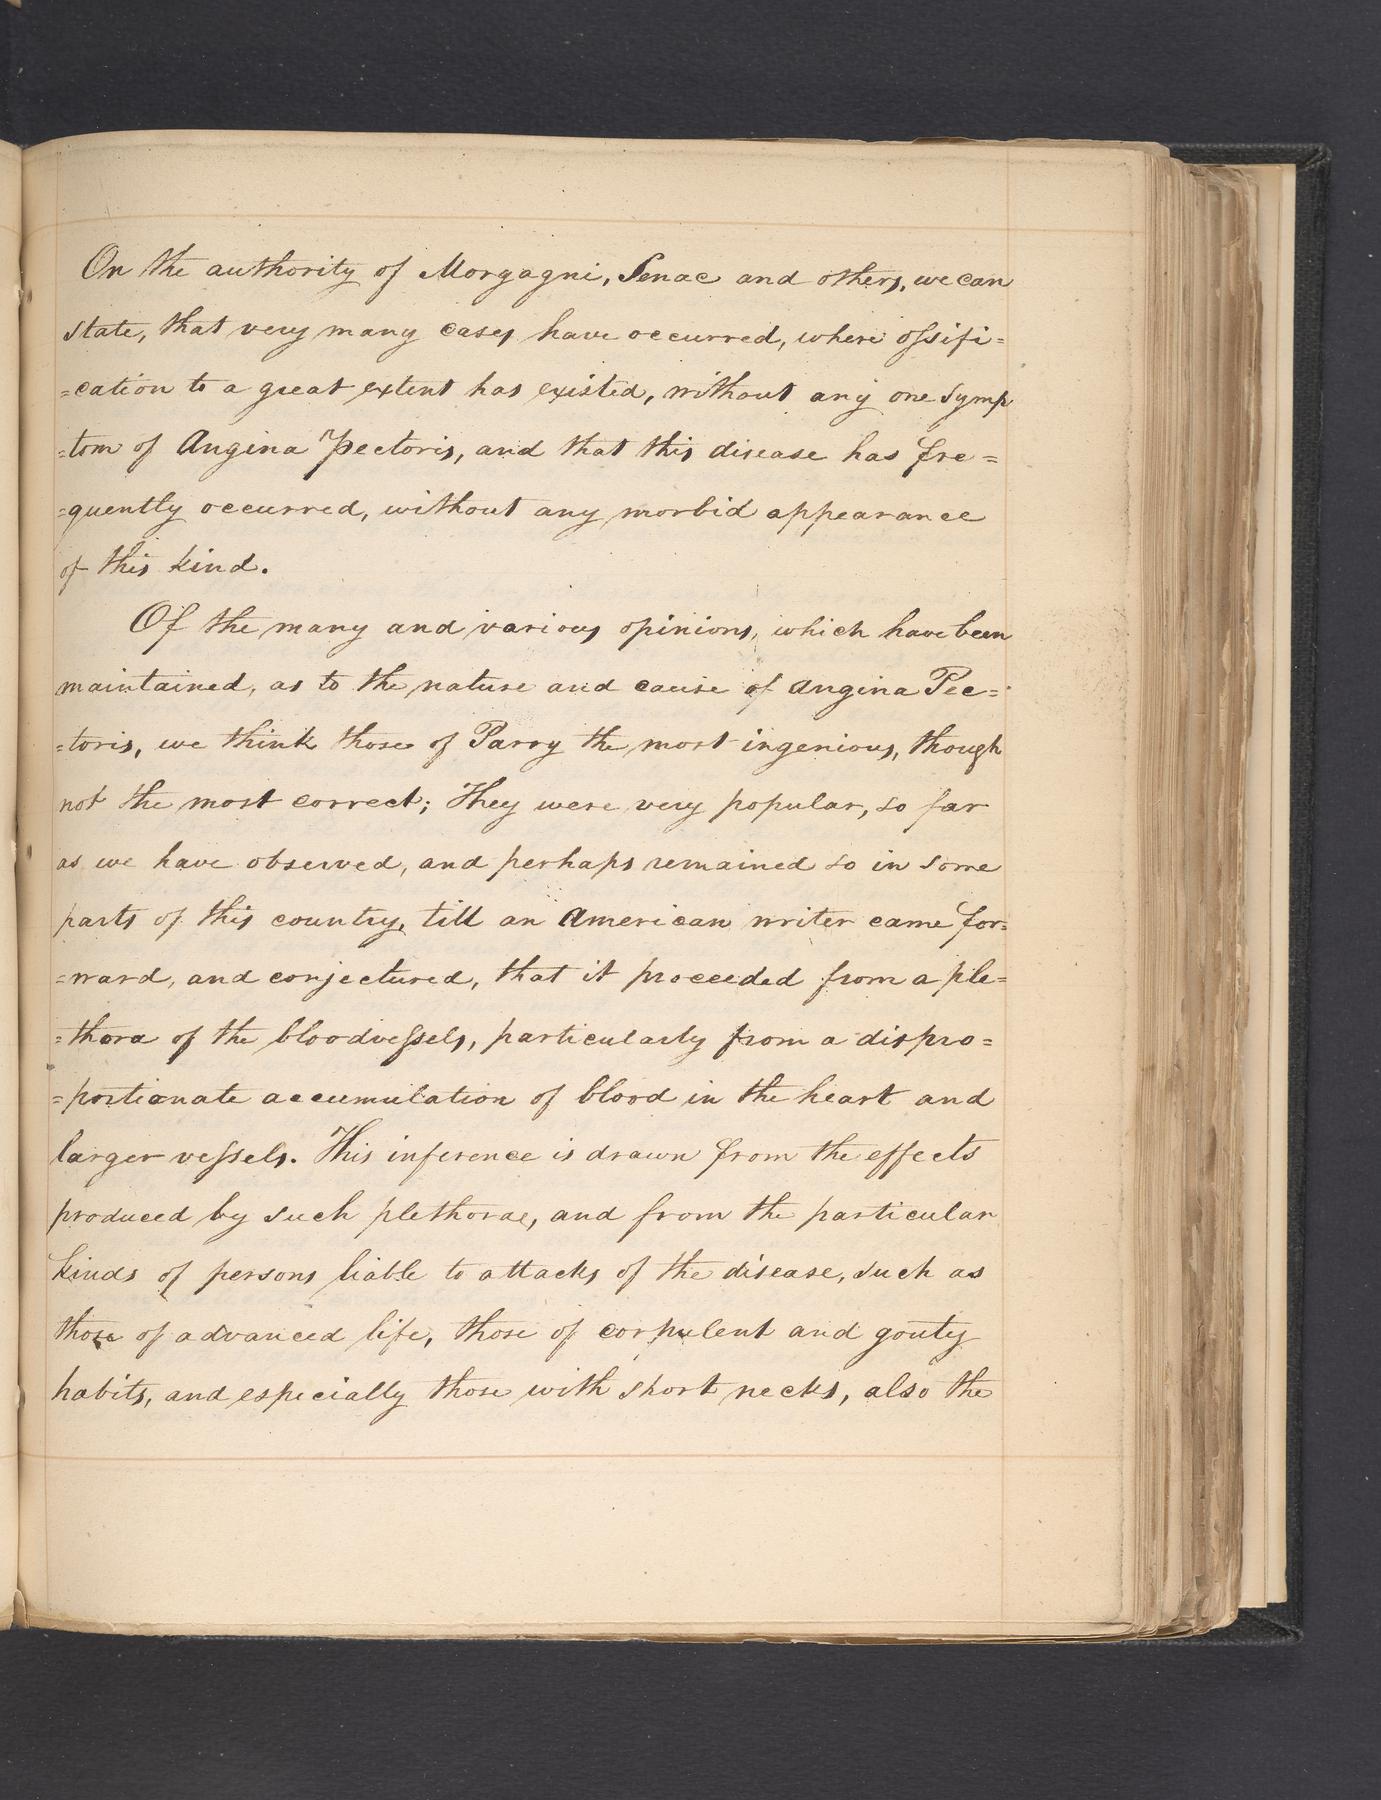 On the authority of Morgagni, Senac and others, we can
state, that very many cases have occurred, where ossifi=
=cation to a great extent has existed, without any one symp
=tom of Angina Pectoris, and that this disease has fre=
=quently occurred, without any morbid appearance
of this kind.
Of the many and various opinions, which have been
maintained, as to the nature and cause of Angina Pec=
=toris, we think those of Parry the most ingenious, though
not the most correct; They were very popular, so far
as we have observed, and perhaps remained so in some
parts of this country, till an American writer came for=
=ward, and conjectured, that it proceeded from a ple=
=thora of the bloodvessels, particularly from a dispro=
=portionate accumulation of blood in the heart and
larger vessels. This inference is drawn from the effects
produced by such plethorae, and from the particular
kinds of persons liable to attacks of the disease, such as
those of advanced life, those of corpulent and gouty
habits, and especially those with short necks, also the